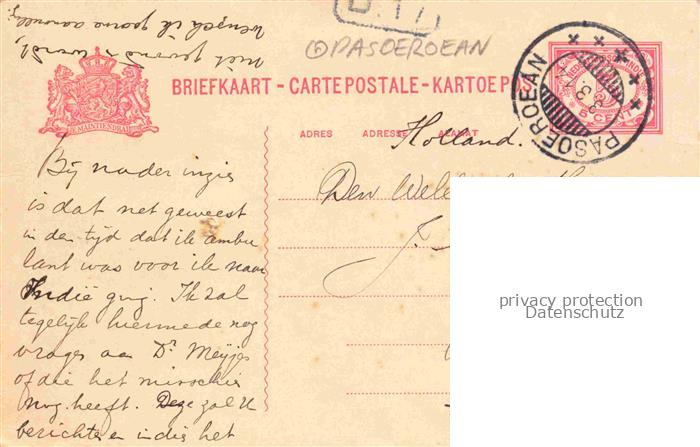 D.17
@PASOEROEAN
niet gezond wordt,
wensch ik gaarne
BRIEFKAART - CARTE POSTALE - KARTOE P
JE MAINTIENDRAI
5 CENT
PASOEROEAN
ADRES ADRESSE ALAMAT
Holland.
Den
J.
Bij nader inzie
is dat net geweest
in den tijd dat ik ambu
lant was voor ik naar
Indië ging. Ik zal
tegelijk hiermede nog
vragen aan Dr. Meyjes
of die het misschie
nog heeft. Deze zal U
berichten indie het
privacy protection
Datenschutz